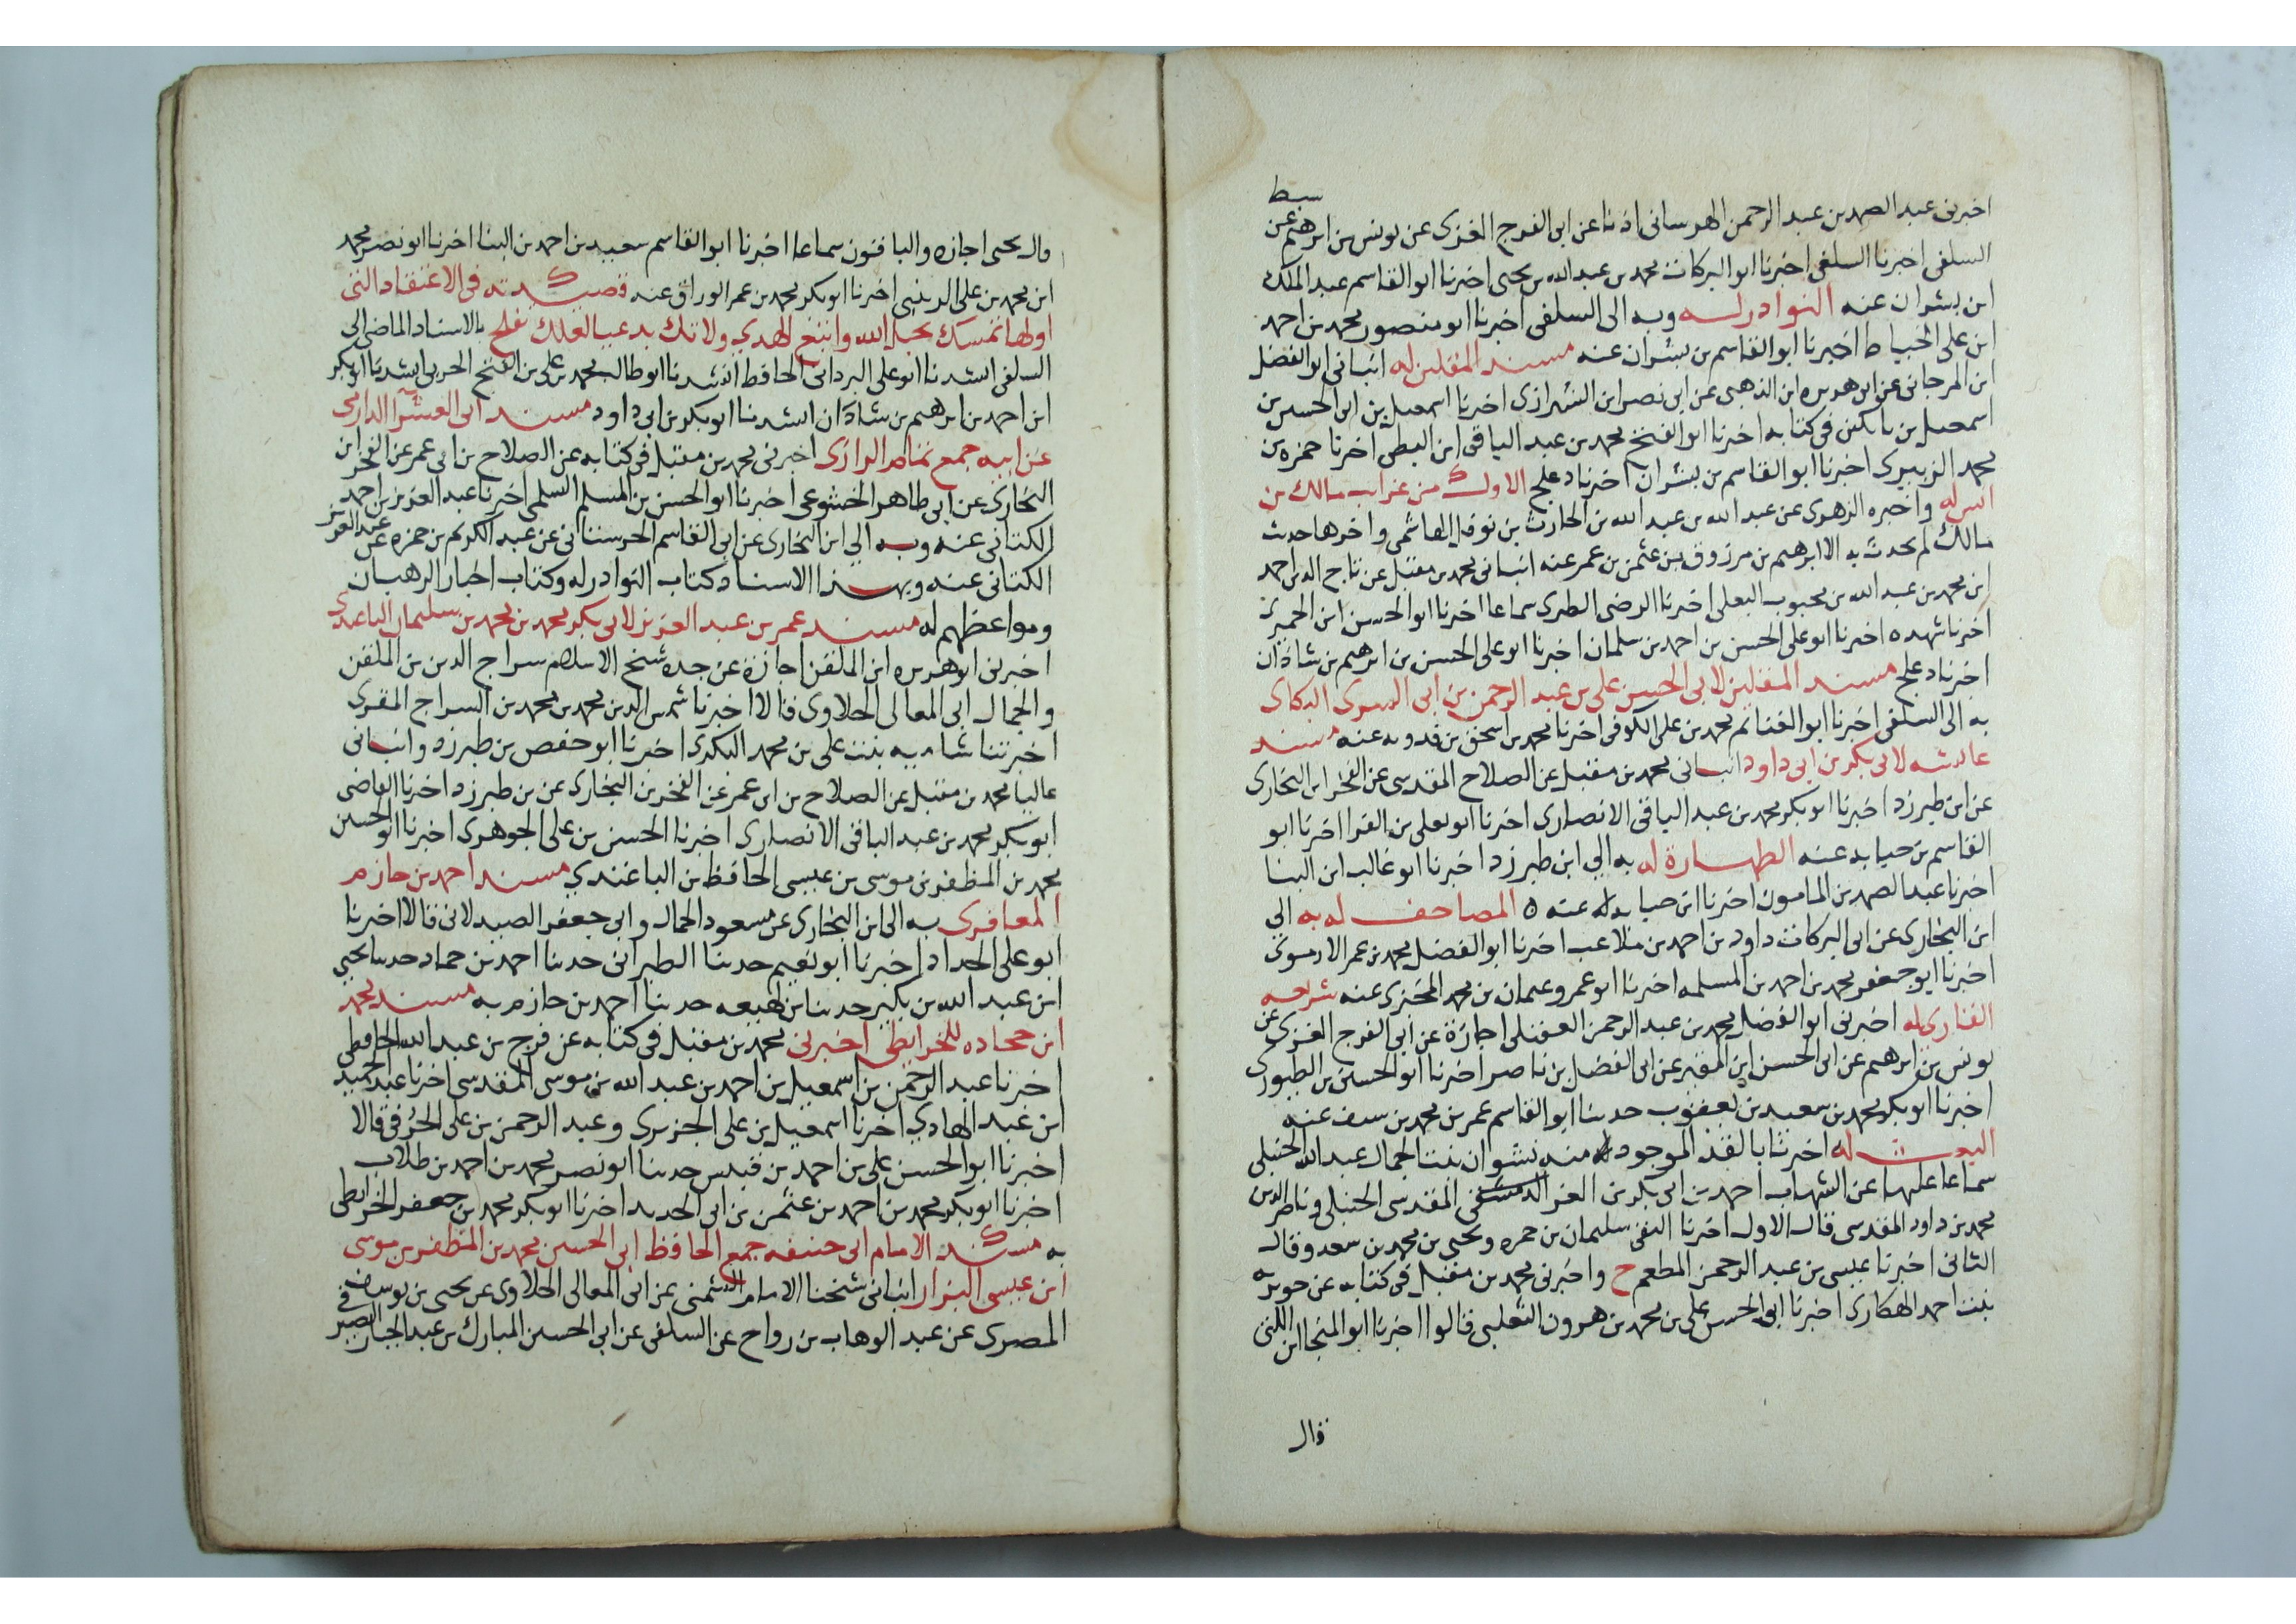 اخبرنى عبد الصمد بن عبد الرحمن الهرسانى اذنا عن ابى الفرج الغزى عن يونس بن ابرهيم عن سبط
السلفى اخبرنا السلفى اخبرنا ابو البركات محمد بن عبد الله بن يحيى اخبرنا ابو القاسم عبد الملك
ابن بشران عنه النوادر له وبه الى السلفى اخبرنا ابو منصور محمد بن احمد
ابن على الخياط اخبرنا ابو القاسم بن بشران عنه مسند المقلين له انبانى ابو الفضل
ابن المرجانى عن ابى هريره ابن الذهبى عن ابى نصر ابن الشيرازى اخبرنا اسمعيل بن ابى الحسين بن
اسمعيل بن باتكين فى كتابه اخبرنا ابو الفتح محمد بن عبد الباقى ابن البطى اخبرنا حمزه بن
محمد الزبيرى اخبرنا ابو القاسم بن بشران اخبرنا دعلج الاول من غرايب مالك بن
انس له واخبره الزهرى عن عبد الله بن عبد الله بن الحارث بن نوفل الهاشمى واخرها حديث
مالك لم يحدث به الا ابرهيم بن مرزوق بن عثمن بن عمر عنه انبانى محمد بن مقبل عن تاج الدين احمد
ابن محمد بن عبد الله بن محبوب البعلى اخبرنا الرضى الطبرى سماعا اخبرنا ابو الحسن ابن الحميزى
اخبرنا شهده اخبرنا ابو على الحسن بن احمد بن سلمان اخبرنا ابو على الحسن بن ابرهيم بن شاذان
اخبرنا دعلج مسند المقلين لابى الحسن على بن عبد الرحمن بن ابى السرى البكاى
به الى السلفى اخبرنا ابو الغنائم محمد بن على الكوفى اخبرنا محمد بن اسحق بن فدويه عنه مسند
عائشه لابى بكر بن ابى داود انبانى محمد بن مقبل عن الصلاح المقدسى عن الفخر ابن البخارى
عن ابن طبرزد اخبرنا ابو بكر محمد بن عبد الباقى الانصارى اخبرنا ابو يعلى بن الفرا اخبرنا ابو
القاسم بن حبابه عنه الطهارة له به الى ابن طبرزد اخبرنا ابو غالب ابن البنا
اخبرنا عبد الصمد بن المامون اخبرنا ابن حبابه عنه المصاحف له به الى
ابن البخارى عن ابى البركات داود بن احمد بن ملاعب اخبرنا ابو الفضل محمد بن عمر الارموى
اخبرنا ابو جعفر محمد بن احمد بن المسلمه اخبرنا ابو عمرو عثمان بن محمد عنه شريعه
القارى له اخبرنى ابو الفضل محمد بن عبد الرحمن العقيلى اجازة عن ابى الفرج الغزى عن
يونس بن ابرهيم عن ابى الحسن ابن المقير عن ابى الفضل بن ناصر اخبرنا ابو الحسين بن الطيورى
اخبرنا ابو بكر محمد بن سعيد بن يعقوب حدثنا ابو القاسم عمر بن محمد بن سيف عنه
البعث له اخبرتنا بالقدر الموجود منه نشوان بنت الجمال عبد الله الحنبلى
سماعا عليها عن الشهاب احمد بن ابى بكر بن العز المقدسى الحنبلى وناصر الدين
محمد بن داود المقدسى قال الاول اخبرنا التقى سليمان بن حمزه ويحيى بن محمد بن سعد وقال
الثانى اخبرنا عيسى بن عبد الرحمن المطعم ح واخبرنى محمد بن مقبل فى كتابه عن جويريه
بنت احمد الهكارى اخبرنا ابى الحسن على بن محمد بن هرون الثعلبى قالوا اخبرنا ابو المنجا ابن اللتى
قال
قال يحيى اجازه والباقون سماعا اخبرنا ابو القاسم سعيد بن احمد بن البنا اخبرنا ابو نصر محمد
ابن محمد بن على الزينبى اخبرنا ابو بكر محمد بن عمر الوراق عنه قصيدته فى الاعتقاد التى
اولها تمسك بحبل الله واتبع الهدى ولا تك بدعيا لعلك تفلح بالاسناد الماضى الى
السلفى انشدنا ابو على البردانى الحافظ انشدنا ابو طالب محمد بن على بن الفتح الحربى انشدنا ابو بكر
ابن احمد بن ابرهيم بن شاذان انشدنا ابو بكر بن ابى داود مسند ابى العشرا الدارمى
عن ابيه جمع تمام الرازى اخبرنى محمد بن مقبل فى كتابه عن الصلاح بن ابى عمر عن الفخر ابن
البخارى عن ابى طاهر الخشوعى اخبرنا ابو الحسن بن المسلم السلمى اخبرنا عبد العزيز بن احمد
الكتانى عنه وبه الى ابن البخارى عن ابى القاسم الحرستانى عن عبد الكريم بن حمزه عن عبد العزيز
الكتانى عنه وبهذا الاسناد كتاب النوادر له وكتاب اخبار الرهبان
ومواعظهم له مسند عمر بن عبد العزيز لابى بكر محمد بن محمد بن سليمان الباغندى
اخبرنى ابو هريره ابن الملقن اجازة عن جده شيخ الاسلام سراج الدين بن الملقن
والجمال ابى المعالى الحلاوى قالا اخبرنا شمس الدين محمد بن محمد بن السراج المقرى
اخبرتنا شاميه بنت على بن محمد البكرى اخبرنا ابو حفص بن طبرزد وانبانى
عاليا محمد بن مقبل عن الصلاح بن ابى عمر عن الفخر بن البخارى عن بن طبرزد اخبرنا القاضى
ابو بكر محمد بن عبد الباقى الانصارى اخبرنا الحسن بن على الجوهرى اخبرنا ابو الحسين
محمد بن المظفر بن موسى بن عيسى الحافظ بن الباغندي مسند احمد بن حازم
المعافرى به الى ابن البخارى عن مسعود الجمال وابى جعفر الصيدلانى قالا اخبرنا
ابو على الحداد اخبرنا ابو نعيم حدثنا الطبرانى حدثنا احمد بن حماد حدثنا يحيى
ابن عبد الله بن بكير حدثنا بن لهيعه حدثنا احمد بن حازم به مسند محمد
ابن جحاده للخرايطى اخبرنى محمد بن مقبل فى كتابه عن فرج بن عبد الله الحافظى
اخبرنا عبد الرحمن بن اسمعيل بن احمد بن عبد الله بن موسى المقدسى اخبرنا عبد الحميد
ابن عبد الهادي اخبرنا اسمعيل بن على الجنزوى وعبد الرحمن بن على الخرقى قالا
اخبرنا ابو الحسن على بن احمد بن قبيس حدثنا ابو نصر محمد بن احمد بن طلاب
اخبرنا ابو بكر محمد بن احمد بن عثمن بن ابى الحديد اخبرنا ابو بكر محمد بن جعفر الخرايطى
به مسند الامام ابى حنيفه جمع الحافظ ابى الحسين محمد بن المظفر بن موسى
ابن عيسى البزار انبانى شيخنا الامام الشمنى عن ابى المعالى الحلاوى عن يحيى بن يوسف
المصرى عن عبد الوهاب بن رواح عن السلفى عن ابى الحسين المبارك بن عبد الجبار الصيرفى